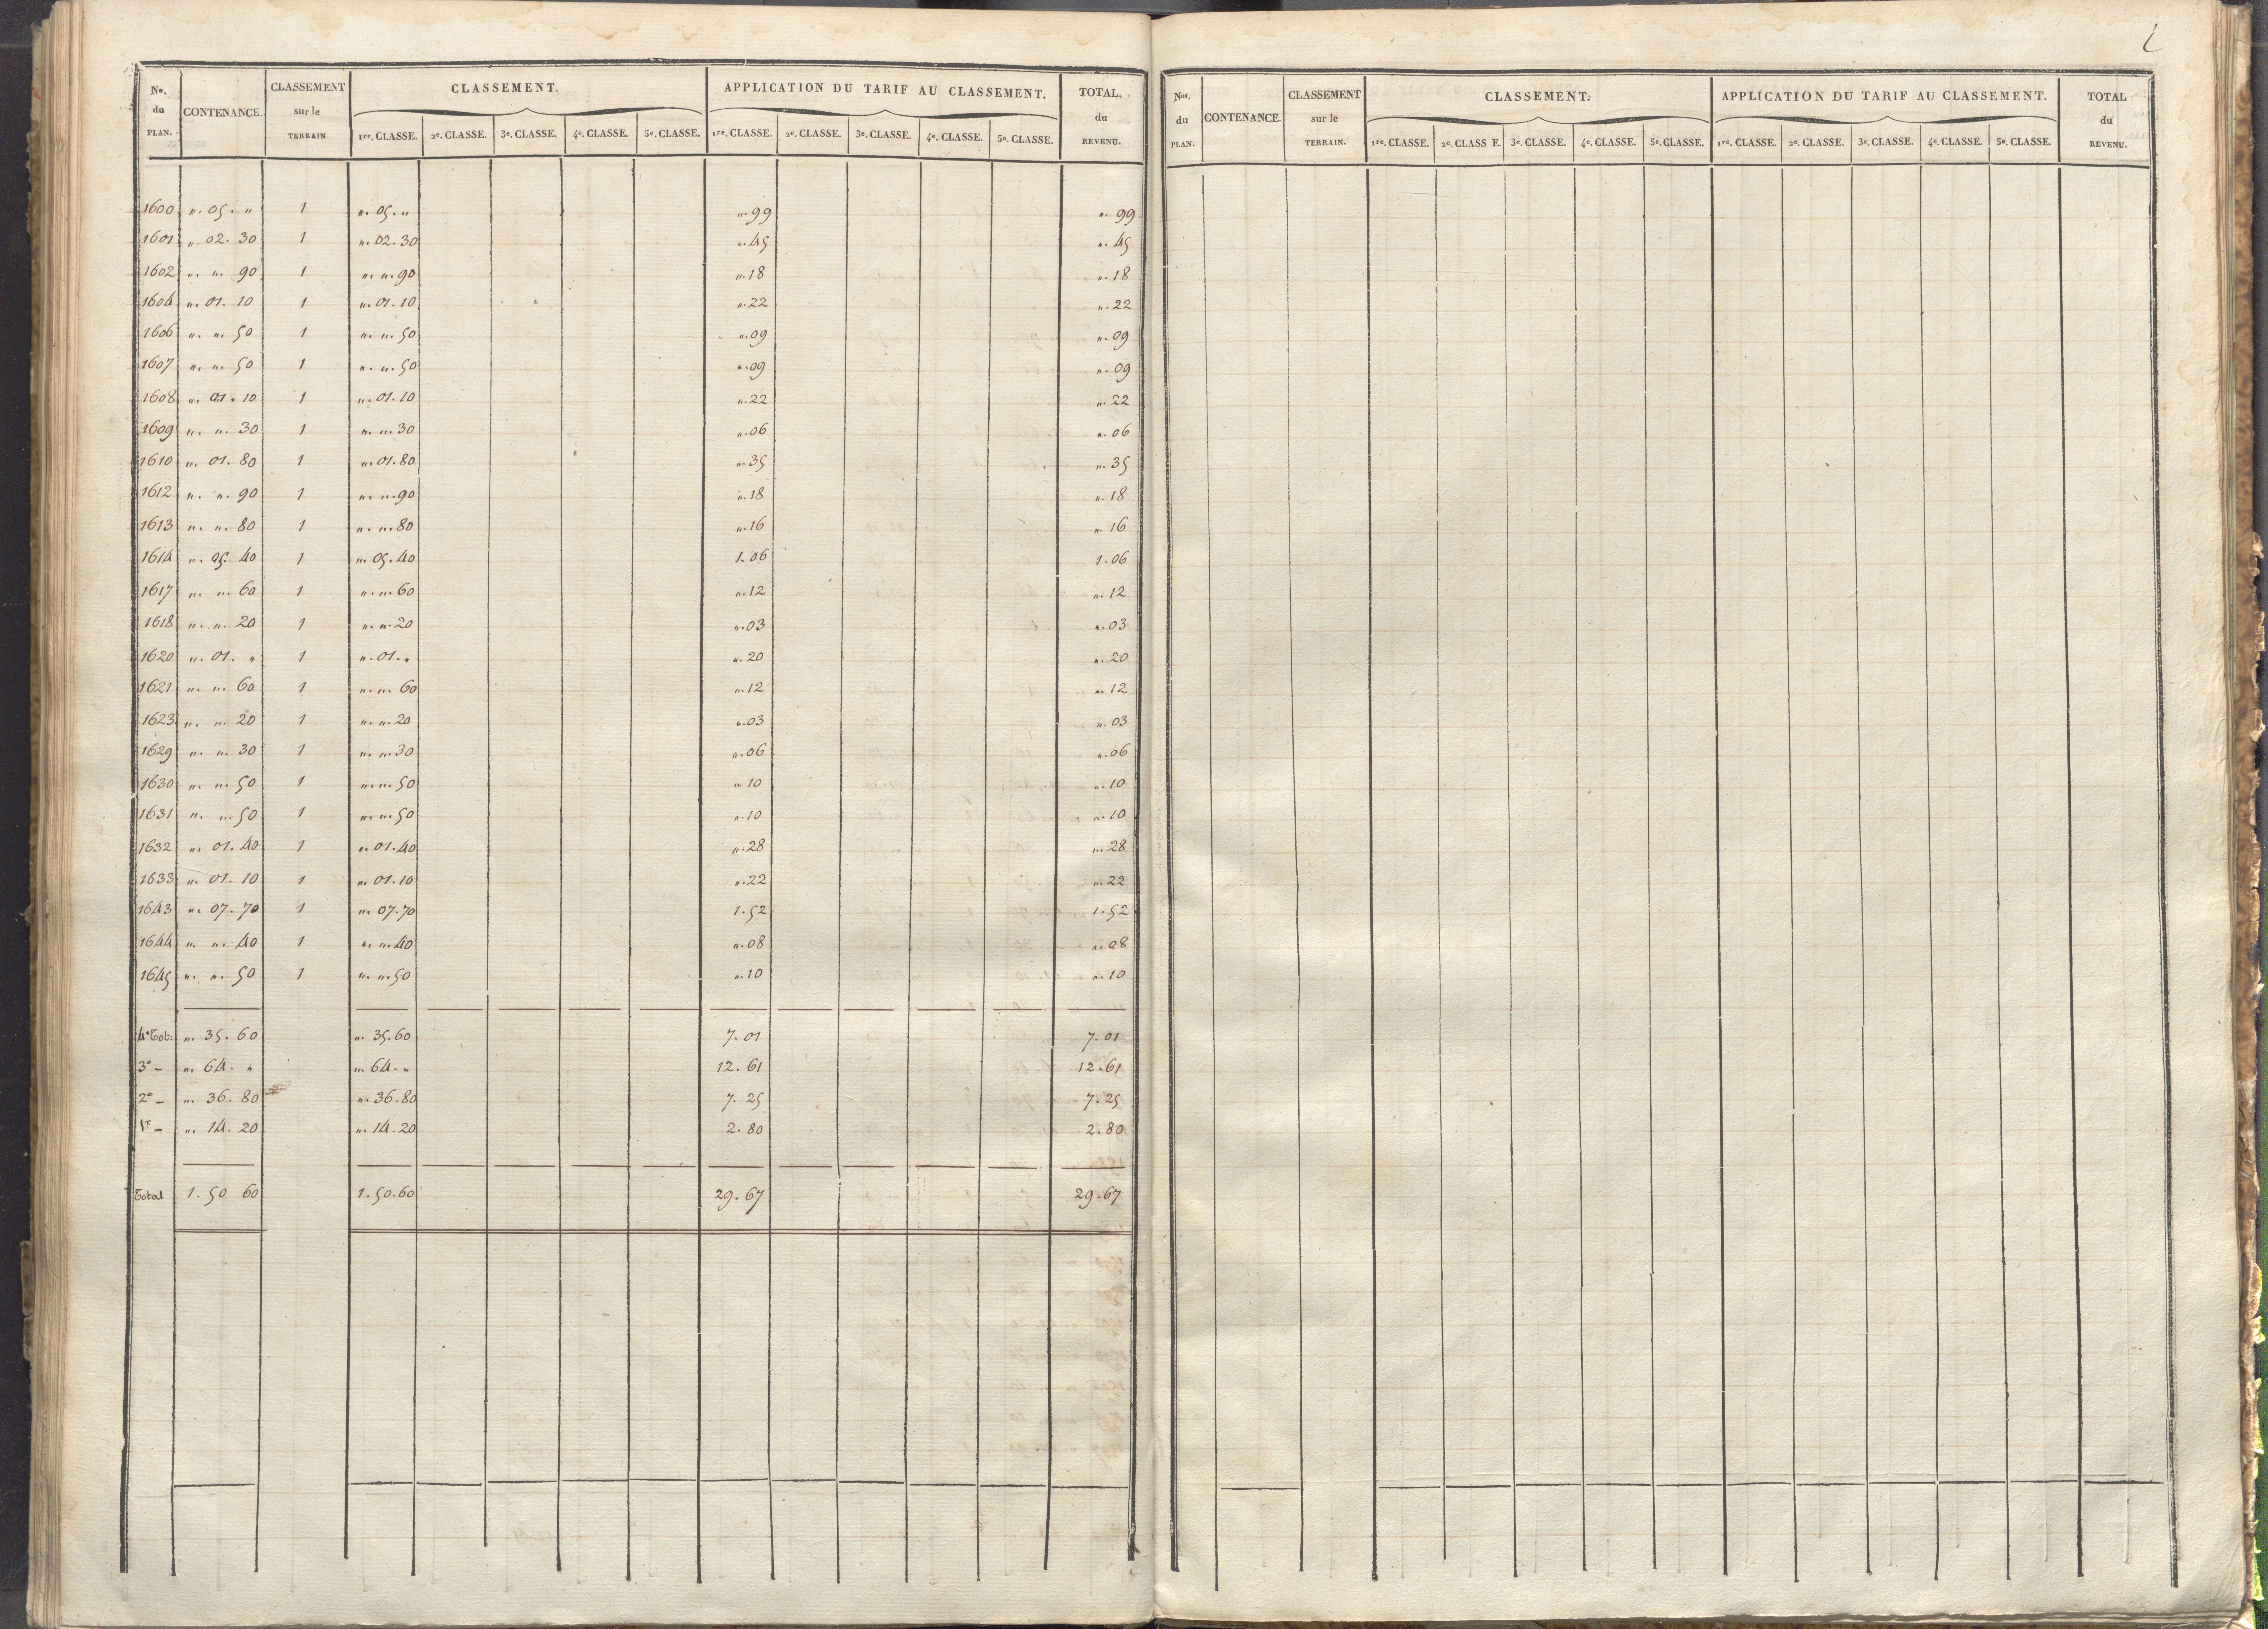 No. du PLAN. CONTENANCE. CLASSEMENT sur le TERRAIN CLASSEMENT. APPLICATION DU TARIF AU CLASSEMENT. TOTAL. du REVENU.
1re. CLASSE. 2e. CLASSE. 3e. CLASSE. 4e. CLASSE. 5e. CLASSE. 1re. CLASSE. 2e. CLASSE. 3e. CLASSE. 4e. CLASSE. 5e. CLASSE.
1600 ". 05. " 1 ". 05. " ". 99 ". 99
1601 ". 02. 30 1 ". 02. 30 ". 45 ". 45
1602 ". ". 90 1 ". ". 90 ". 18 ". 18
1604 ". 01. 10 1 ". 01. 10 ". 22 ". 22
1606 ". ". 50 1 ". ". 50 ". 09 ". 09
1607 ". ". 50 1 ". ". 50 ". 09 ". 09
1608 ". 01. 10 1 ". 01. 10 ". 22 ". 22
1609 ". ". 30 1 ". ". 30 ". 06 ". 06
1610 ". 01. 80 1 ". 01. 80 ". 35 ". 35
1612 ". ". 90 1 ". ". 90 ". 18 ". 18
1613 ". ". 80 1 ". ". 80 ". 16 ". 16
1614 ". 05. 40 1 ". 05. 40 1. 06 1. 06
1617 ". ". 60 1 ". ". 60 ". 12 ". 12
1618 ". ". 20 1 ". ". 20 ". 03 ". 03
1620 ". 01. " 1 ". 01. " ". 20 ". 20
1621 ". ". 60 1 ". ". 60 ". 12 ". 12
1623 ". ". 20 1 ". ". 20 ". 03 ". 03
1629 ". ". 30 1 ". ". 30 ". 06 ". 06
1630 ". ". 50 1 ". ". 50 ". 10 ". 10
1631 ". ". 50 1 ". ". 50 ". 10 ". 10
1632 ". 01. 40 1 ". 01. 40 ". 28 ". 28
1633 ". 01. 10 1 ". 01. 10 ". 22 ". 22
1643 ". 07. 70 1 ". 07. 70 1. 52 1. 52
1644 ". ". 40 1 ". ". 40 ". 08 ". 08
1645 ". ". 50 1 ". ". 50 ". 10 ". 10
4e Tot. ". 35. 60 ". 35. 60 7. 01 7. 01
3e – ". 64. " ". 64. " 12. 61 12. 61
2e – ". 36. 80 ". 36. 80 7. 25 7. 25
1re – ". 14. 20 ". 14. 20 2. 80 2. 80
Total 1. 50 60 1. 50. 60 29. 67 29. 67
Nos. du PLAN. CONTENANCE. CLASSEMENT sur le TERRAIN. CLASSEMENT. APPLICATION DU TARIF AU CLASSEMENT. TOTAL du REVENU.
1re. CLASSE. 2e. CLASS E. 3e. CLASSE. 4e. CLASSE. 5e. CLASSE. 1re. CLASSE. 2e. CLASSE. 3e. CLASSE. 4e. CLASSE. 5e. CLASSE.